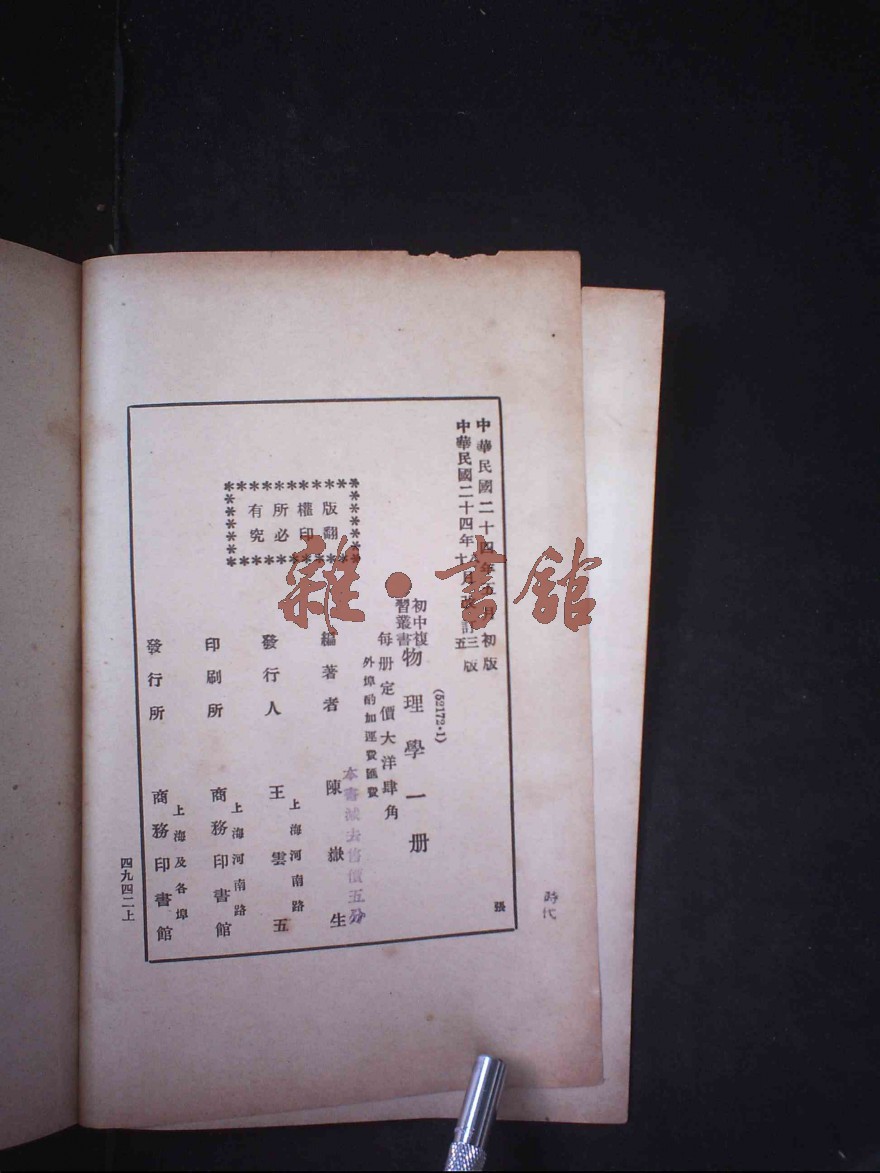 中華民國二十四年五月初版
中華民國二十四年十月改訂三五版
(52172·1)
初中複
習叢書
物理學一册
每册定價大洋肆角
外埠酌加運費匯費
本書減去售價五分
版權所有
翻印必究
編著者 陳嶽生
發行人 王雲五
上海河南路
印刷所 商務印書館
上海河南路
發行所 商務印書館
上海及各埠
四九四二上
張
時代
雜·書館